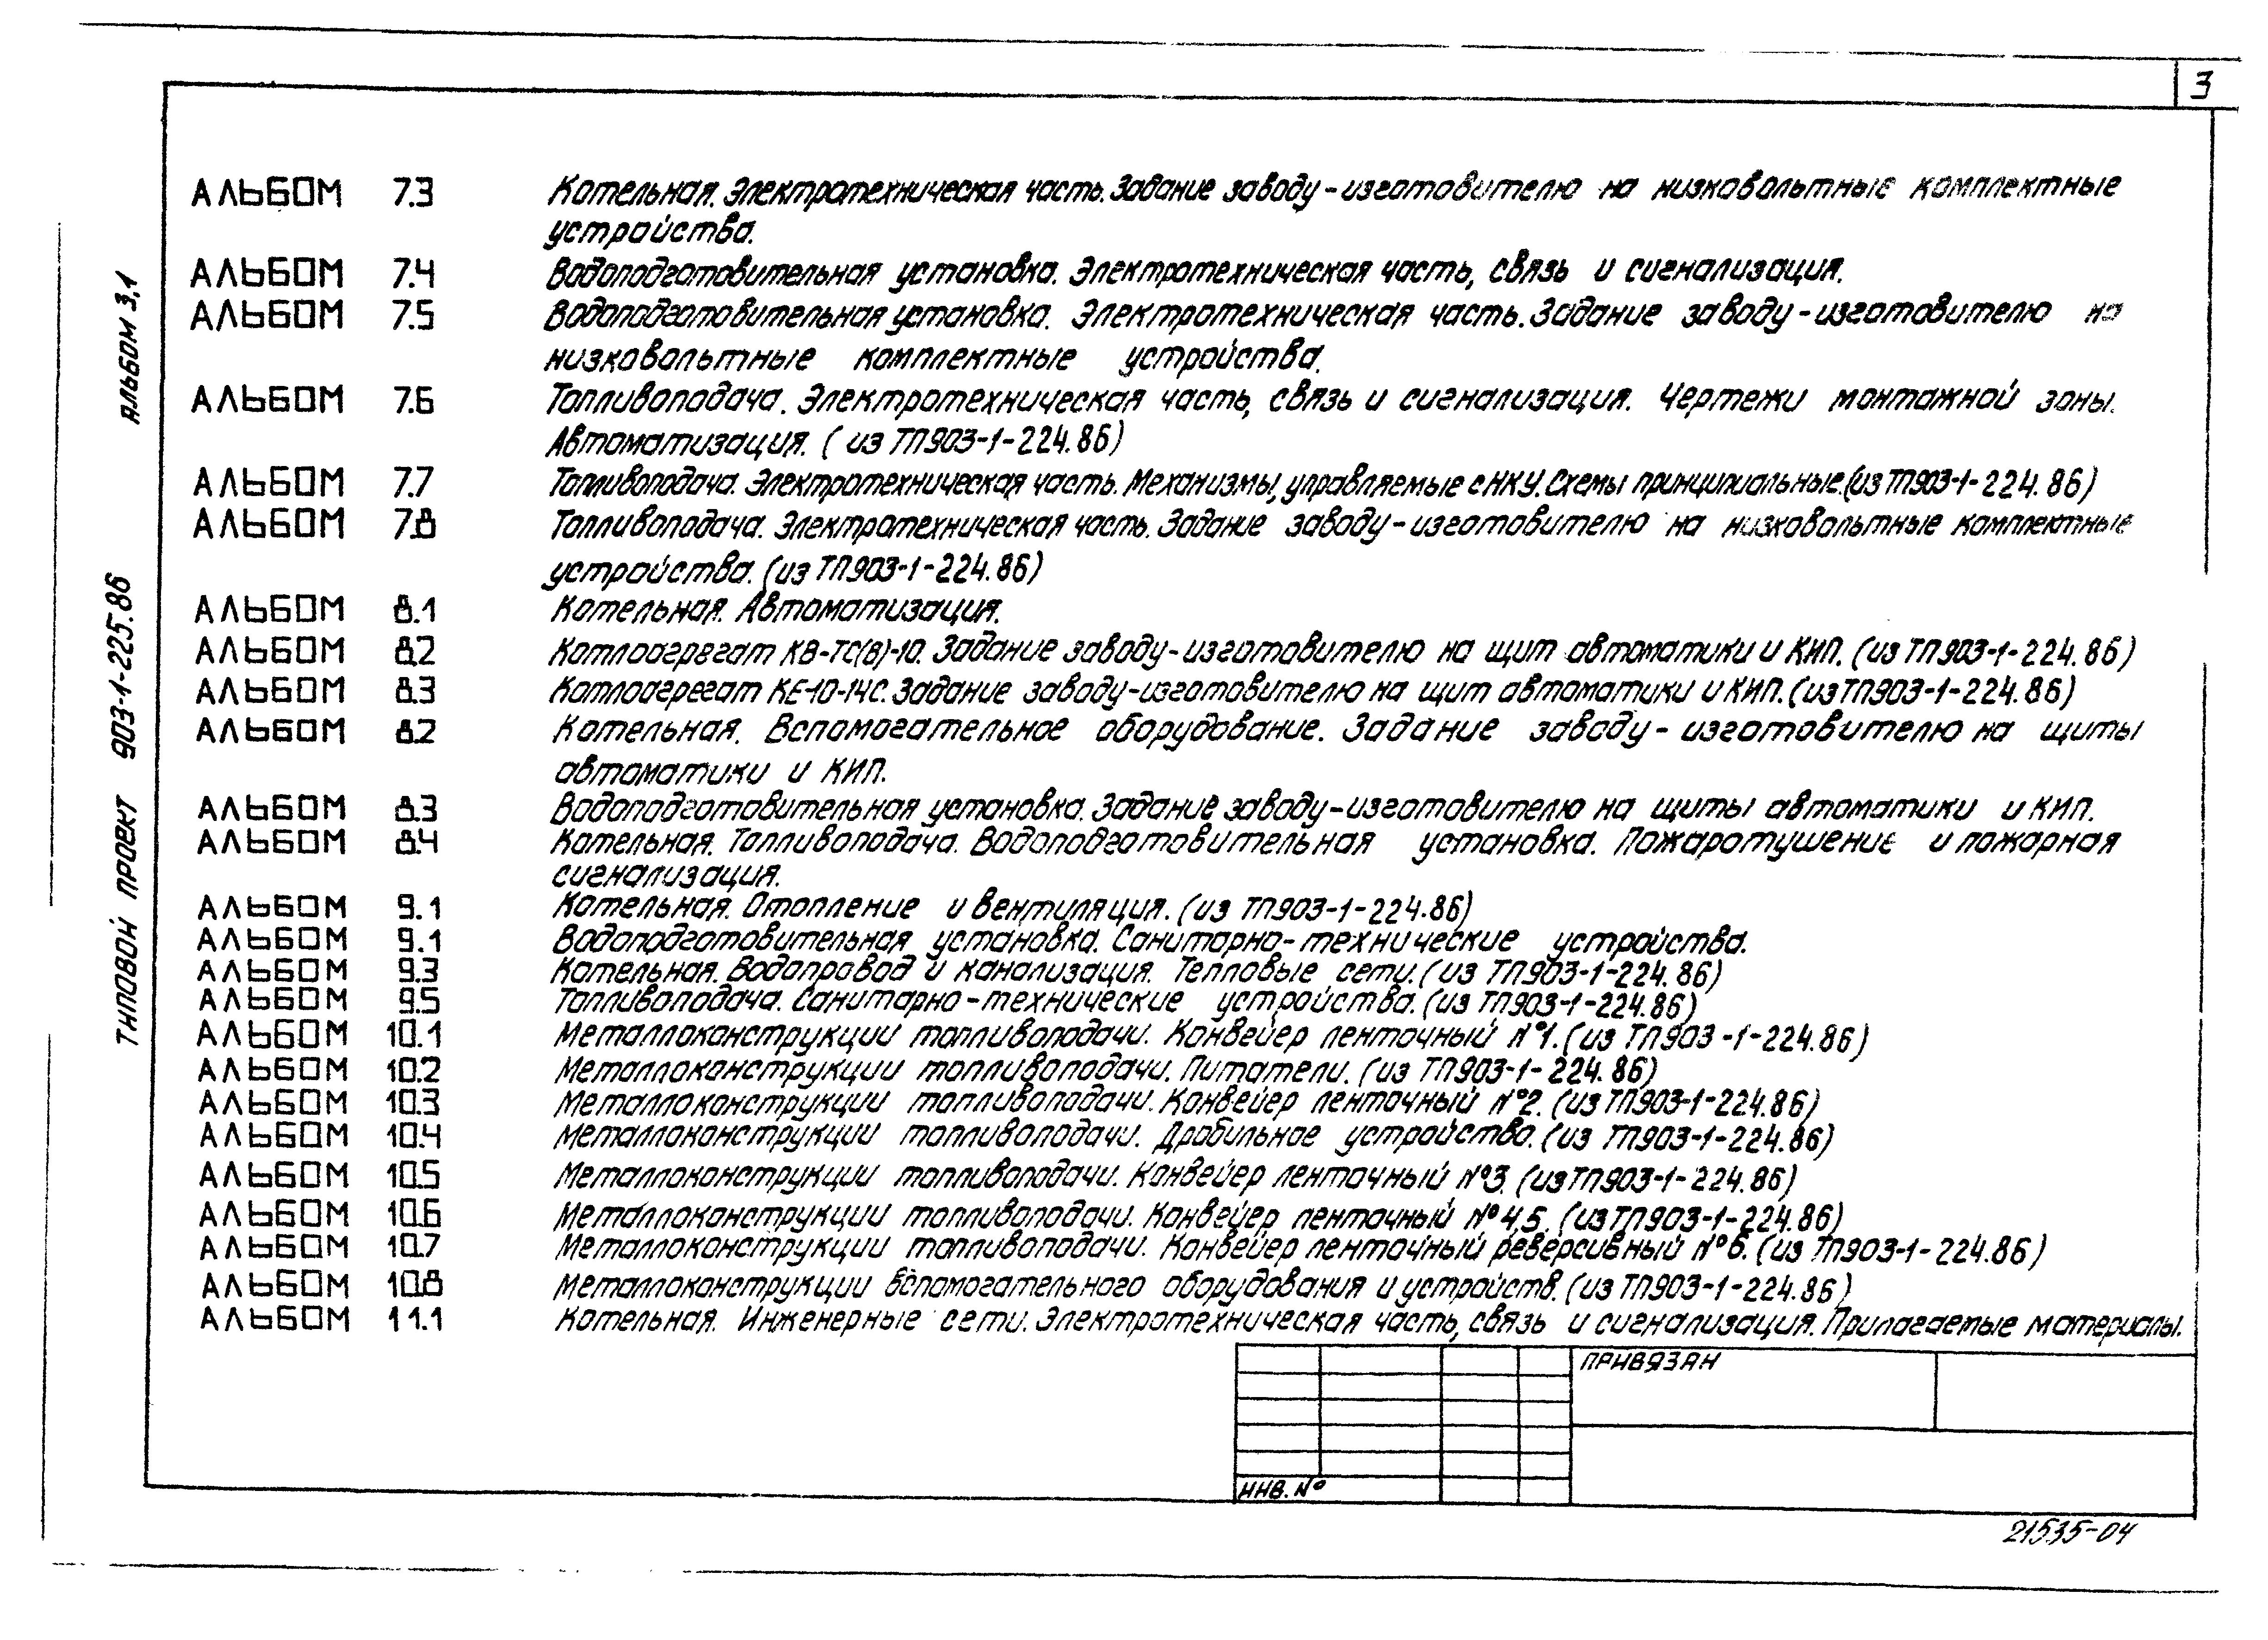 3
АЛЬБОМ 7.3 Котельная. Электротехническая часть. Задание заводу-изготовителю на низковольтные комплектные
устройства.
АЛЬБОМ 7.4 Водоподготовительная установка. Электротехническая часть, связь и сигнализация.
АЛЬБОМ 7.5 Водоподготовительная установка. Электротехническая часть. Задание заводу-изготовителю на
низковольтные комплектные устройства.
АЛЬБОМ 7.6 Топливоподача. Электротехническая часть, связь и сигнализация. Чертежи монтажной зоны.
Автоматизация. (из ТП903-1-224.86)
АЛЬБОМ 7.7 Топливоподача. Электротехническая часть. Механизмы, управляемые с НКУ. Схемы принципиальные. (из ТП903-1-224.86)
АЛЬБОМ 7.8 Топливоподача. Электротехническая часть. Задание заводу-изготовителю на низковольтные комплектные
устройства. (из ТП903-1-224.86)
АЛЬБОМ 8.1 Котельная. Автоматизация.
АЛЬБОМ 8.2 Котлоагрегат КВ-ТС(В)-10. Задание заводу-изготовителю на щит автоматики и КИП. (из ТП903-1-224.86)
АЛЬБОМ 8.3 Котлоагрегат КЕ-10-14С. Задание заводу-изготовителю на щит автоматики и КИП. (из ТП903-1-224.86)
АЛЬБОМ 8.2 Котельная. Вспомогательное оборудование. Задание заводу-изготовителю на щиты
автоматики и КИП.
АЛЬБОМ 8.3 Водоподготовительная установка. Задание заводу-изготовителю на щиты автоматики и КИП.
АЛЬБОМ 8.4 Котельная. Топливоподача. Водоподготовительная установка. Пожаротушение и пожарная
сигнализация.
АЛЬБОМ 9.1 Котельная. Отопление и вентиляция. (из ТП903-1-224.86)
АЛЬБОМ 9.1 Водоподготовительная установка. Санитарно-технические устройства.
АЛЬБОМ 9.3 Котельная. Водопровод и канализация. Тепловые сети. (из ТП903-1-224.86)
АЛЬБОМ 9.5 Топливоподача. Санитарно-технические устройства. (из ТП903-1-224.86)
АЛЬБОМ 10.1 Металлоконструкции топливоподачи. Конвейер ленточный №1. (из ТП903-1-224.86)
АЛЬБОМ 10.2 Металлоконструкции топливоподачи. Питатели. (из ТП903-1-224.86)
АЛЬБОМ 10.3 Металлоконструкции топливоподачи. Конвейер ленточный №2. (из ТП903-1-224.86)
АЛЬБОМ 10.4 Металлоконструкции топливоподачи. Дробильное устройство. (из ТП903-1-224.86)
АЛЬБОМ 10.5 Металлоконструкции топливоподачи. Конвейер ленточный №3. (из ТП903-1-224.86)
АЛЬБОМ 10.6 Металлоконструкции топливоподачи. Конвейер ленточный №4,5. (из ТП903-1-224.86)
АЛЬБОМ 10.7 Металлоконструкции топливоподачи. Конвейер ленточный реверсивный №6. (из ТП903-1-224.86)
АЛЬБОМ 10.8 Металлоконструкции вспомогательного оборудования и устройств. (из ТП903-1-224.86)
АЛЬБОМ 11.1 Котельная. Инженерные сети. Электротехническая часть, связь и сигнализация. Прилагаемые материалы.
ТИПОВОЙ ПРОЕКТ 903-1-225.86 АЛЬБОМ 3.1
ПРИВЯЗАН
ИНВ. №
21535-04